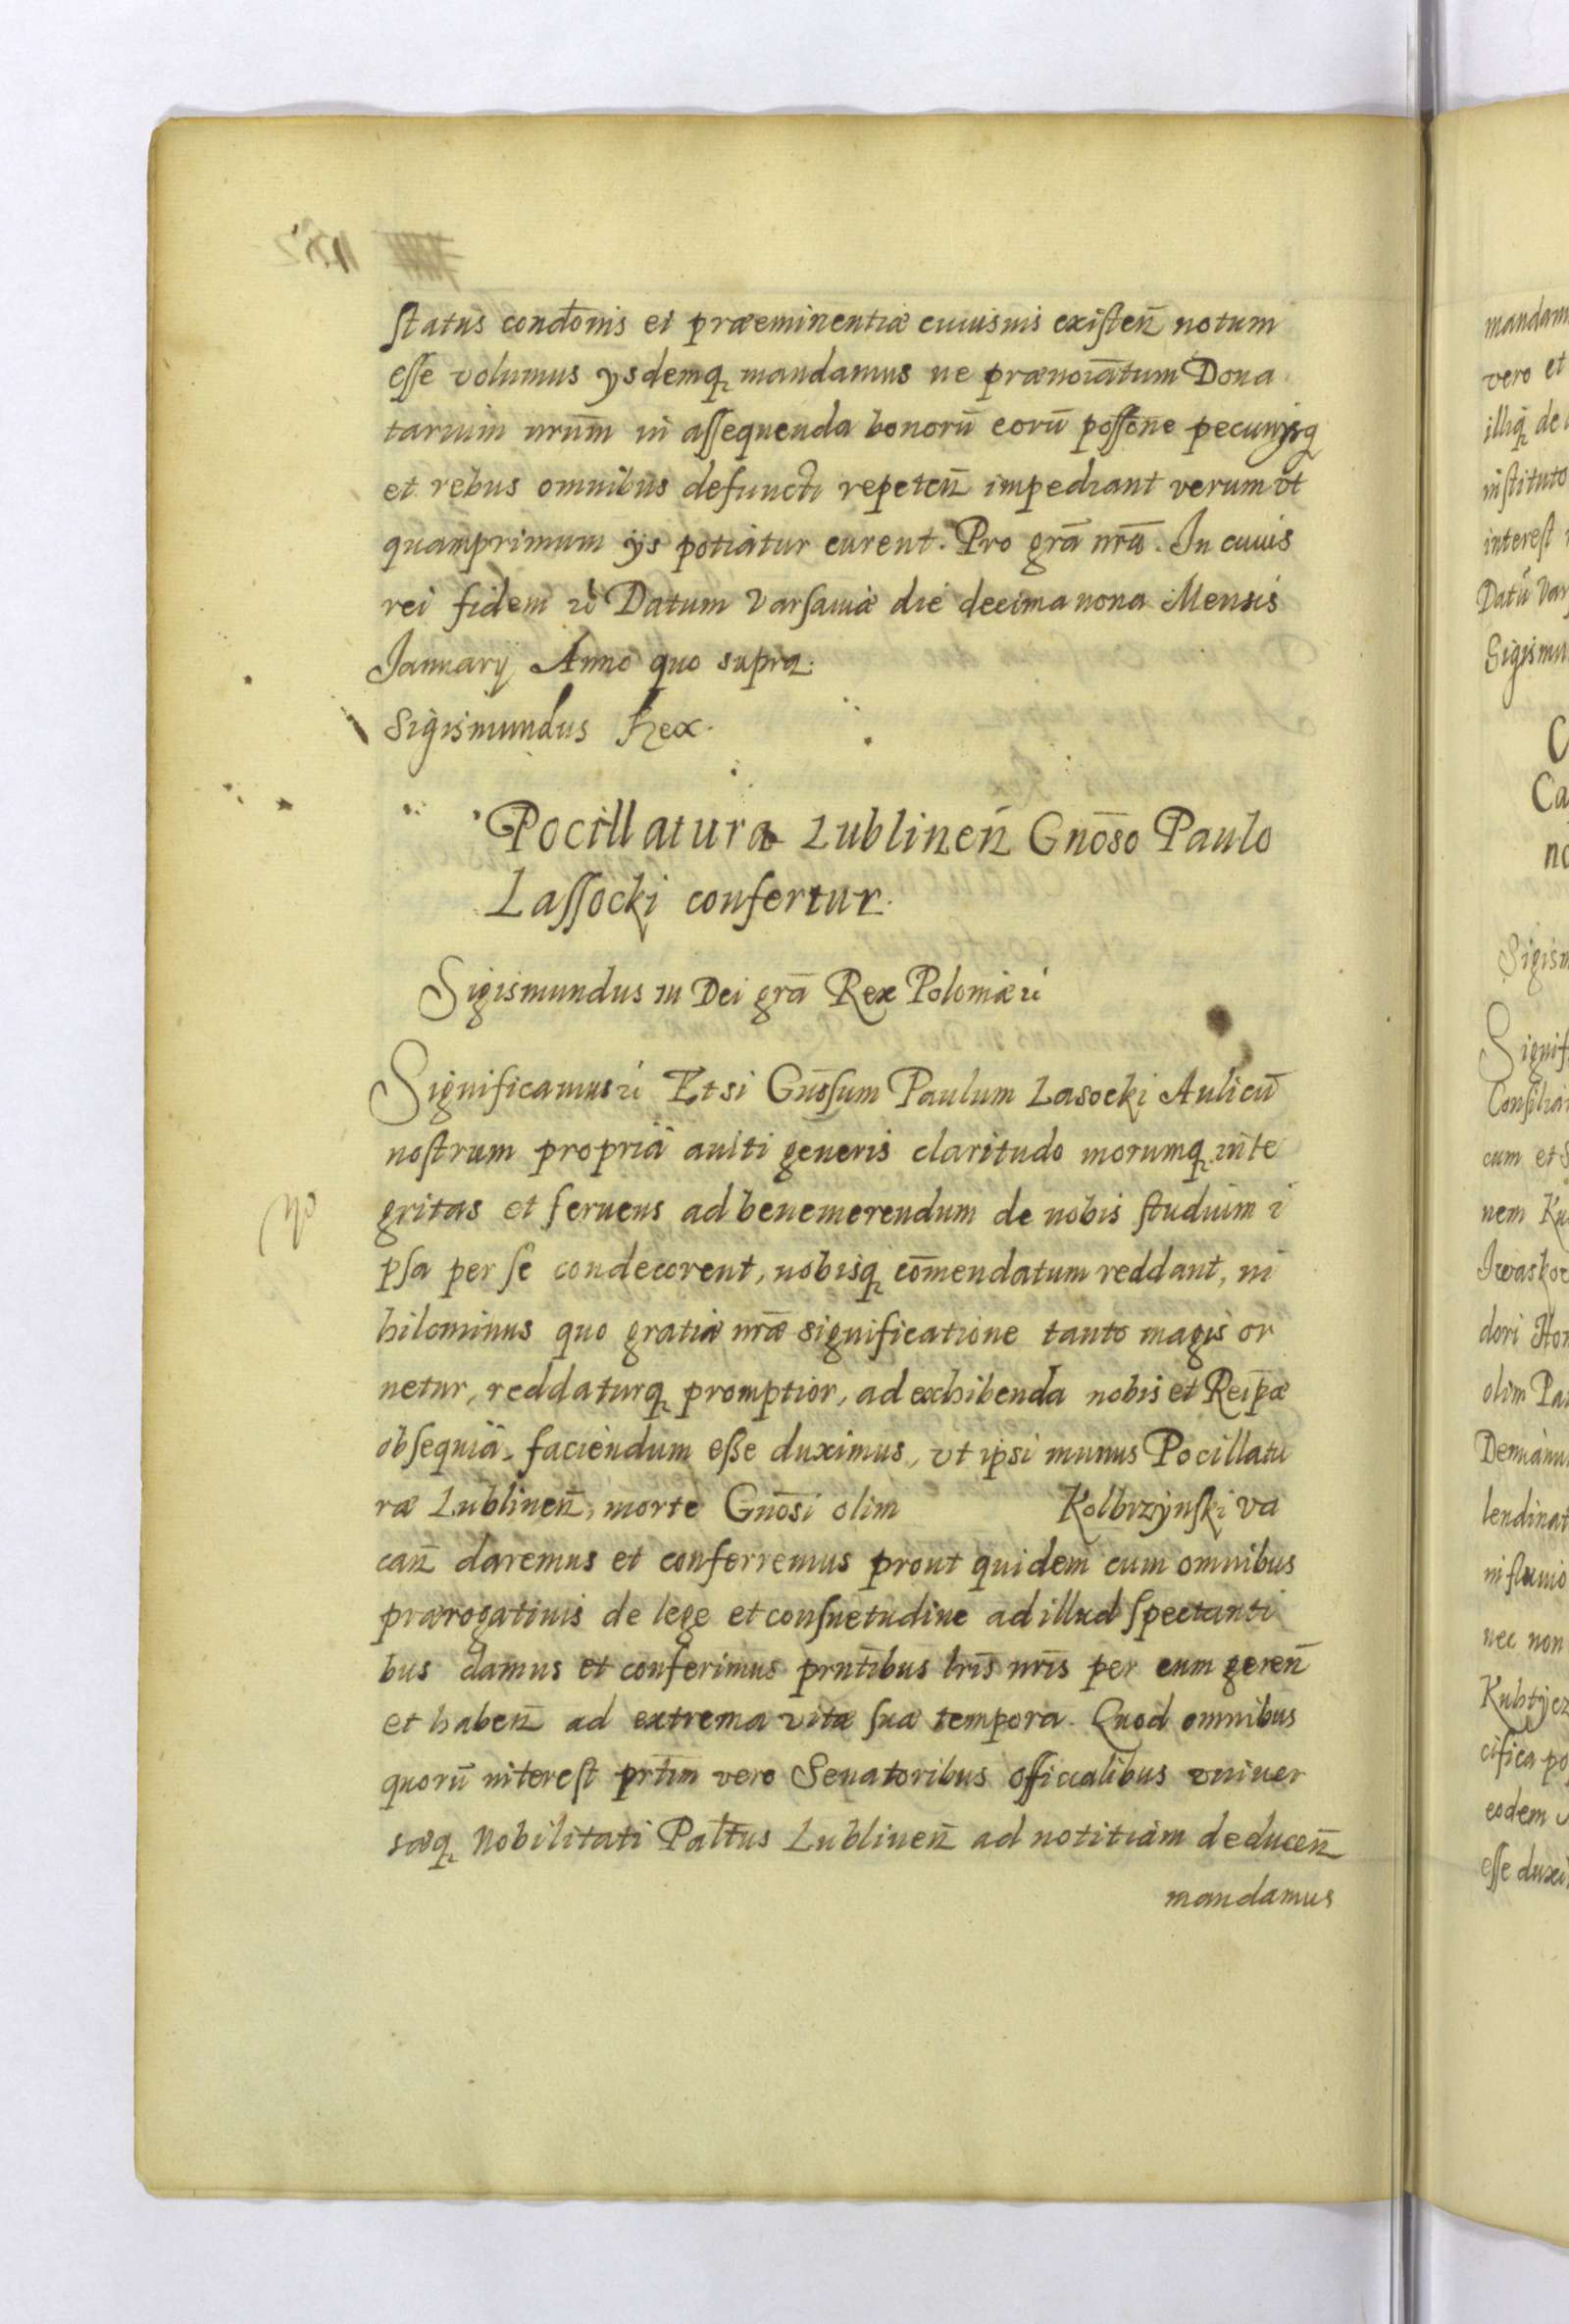 status condōnis et præeminentiæ cuiusuis existen̄ notum
esse volumus ysdemq̨ mandamus ne prænoīatum Dona
tarium nrūm in assequenda bonorū eorū possōne pecunijsq̨
et rebus omnibus defuncti repeten̄ impediant verum vt
quamprimum ÿs potiatur curent. Pro grā nrā. In cuius
rei fidem &c Datum Varsauiæ die decima nona Mensis
Januarÿ Anno quo supra.
Sigismundus Rex.
Pocillatura Lublinen̄ Gnōso Paulo
Lassocki confertur.
Sigismundus III Dei grā Rex Poloniæ &c
Significamus &c Etsi Gnōsum Paulum Lasocki Aulicū
nostrum propria auiti generis claritudo morumq̨ inte
gritas et feruens ad benemerendum de nobis studium i
psa per se condecorent, nobisq̨ cōmendatum reddant, ni
hilominus quo gratiæ nrǣ significatione tanto magis or
netur, reddaturq̨ promptior, ad exhibenda nobis et Reip̄æ
obsequia, faciendum esse duximus, vt ipsi munus Pocillatu
ræ Lublinen̄, morte Gnōsi olim Kolbrzÿnski va
can̄ daremus et conferremus prout quidem cum omnibus
prærogatiuis de lege et consuetudine ad illud spectanti
bus damus et conferimus prn̄tibus lrīs nrīs per eum geren̄
et haben̄ ad extrema vitæ suæ tempora. Quod omnibus
quorū interest prt̄im vero Senatoribus officialibus vniuer
sæq̨ Nobilitati Palt̄us Lublinen̄ ad notitiam deducen̄
mandamus
mandam
vero et
illiq̨ de
instituto
interest
Datū Var
Sigismu
C
Ca
no
Sigism
Signif
Consilia
cum et S
nem Ku
Iwaskow
dori Hon
olim Pa
Demianu
lendinat
in fluuio
nec non
Kuhtÿcz
cifica po
eodem
esse duxi